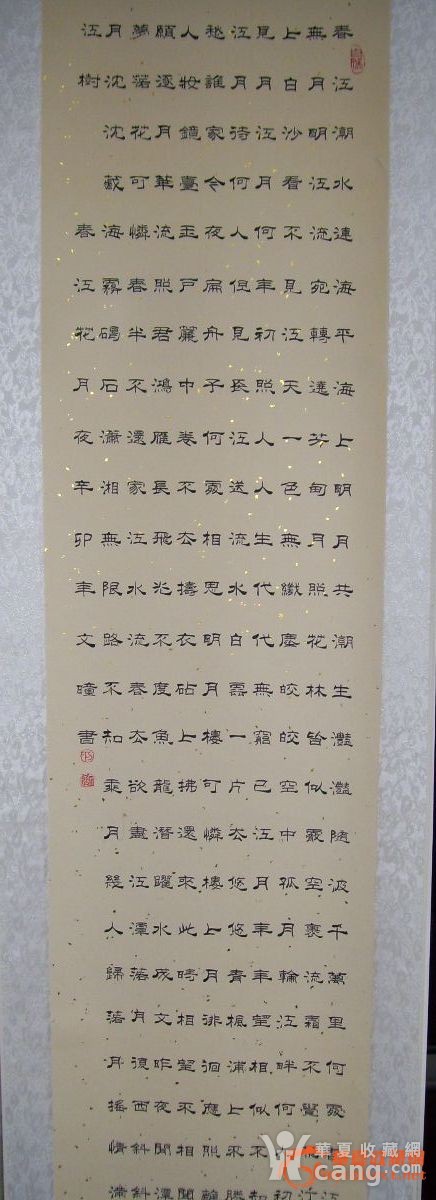 春江潮水連海平海上明月共潮生灩灩隨波千萬里何處春江
無月明江流宛轉遶芳甸月照花林皆似霰空裏流霜不覺
上白沙看不見江天一色無纖塵皎皎空中孤月輪江畔何人初
見月江月何年初照人人生代代無窮已江月年年望相似不知
江月待何人但見長江送流水白雲一片去悠悠青楓浦上不勝
愁誰家今夜扁舟子何處相思明月樓可憐樓上月徘徊應照離
人妝鏡臺玉戶簾中卷不去擣衣砧上拂還來此時相望不相聞
願逐月華流照君鴻雁長飛光不度魚龍潛躍水成文昨夜閒潭
夢落花可憐春半不還家江水流春去欲盡江潭落月復西斜斜
月沈沈藏海霧碣石瀟湘無限路不知乘月幾人歸落月搖情滿
江樹 春江花月夜辛卯年文瞳書
華夏收藏網
cang.com